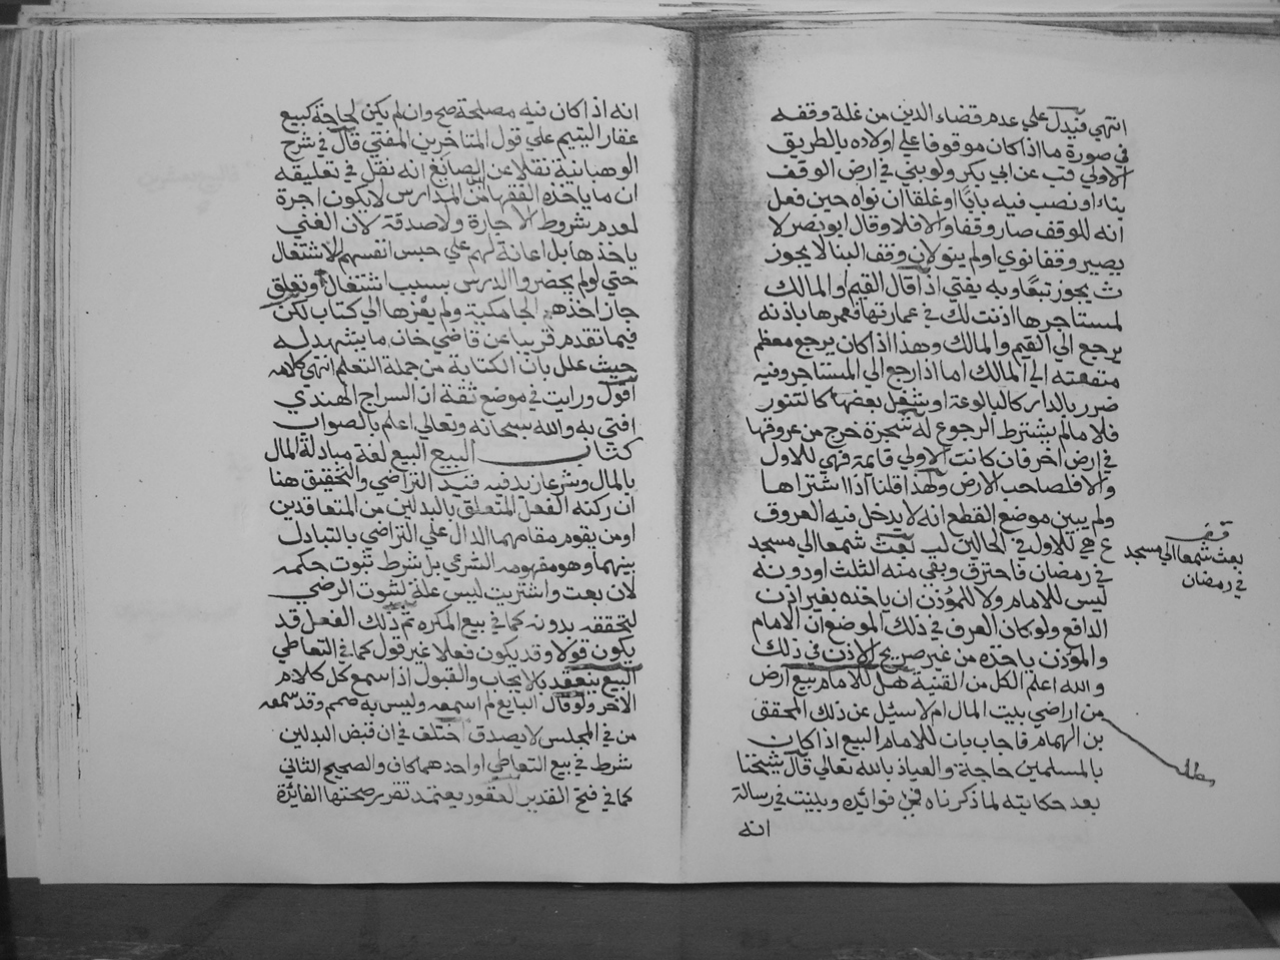 انتهي فيدل علي عدم قضاء الدين من غلة وقفه
في صورة ما اذا كان موقوفا علي اولاده بالطريق
الاولي قب عن ابي بكر ولو بني في ارض الوقف
بناء او نصب فيه بابا او غلقا ان نواه حين فعل
انه للوقف صار وقفا والا فلا وقال ابو نصر لا
يصير وقفا نوي اولم ينو لان وقف البنا لا يجوز
ث يجوز تبعا وبه يفتي اذا قال القيم والمالك
لمستاجرها اذنت لك في عمارتها فعمرها باذنه
يرجع الي القيم والمالك وهذا اذا كان يرجع معظم
منفعته الي المالك اما اذا رجع الي المستاجر وفيه
ضرر بالدار كالبالوعة او شغل بعضها كالتنور
فلا مالم يشترط الرجوع له شجرة خرج من عروقها
في ارض اخر فان كانت الاولي قايمة فهي للاول
والا فلصاحب الارض ولهذا قلنا اذا اشتراها
ولم يبين موضع القطع انه لا يدخل فيه العروق
ع هي للاول في الحالين لب بعث شمعا الي مسجد
في رمضان فاحترق وبقي منه الثلث او دونه
ليس للامام ولا للمؤذن ان ياخذه بغير اذن
الدافع ولو كان العرف في ذلك الموضع ان الامام
والمؤذن ياخذه من غير صريح الاذن في ذلك
والله اعلم الكل من القنية هل للامام بيع ارض
من اراضي بيت المال ام لا سئل عن ذلك المحقق
بن الهمام فاجاب بان للامام البيع اذا كان
بالمسلمين حاجة والعياذ بالله تعالي قال شيخنا
بعد حكايته لما ذكرناه فمن فوائده وبينت في رسالة
انه
قف
بعث شمعا الي مسجد
في رمضان
مطلب
انه اذا كان فيه مصلحة صح وان لم يكن لحاجة كبيع
عقار اليتيم علي قول المتاخرين المفتي قال في شرح
الوهبانية نقلا عن الصايغ انه نقل في تعليقه
ان ما ياخذه الفقها من المدارس لا يكون اجرة
لعدم شروط الاجارة ولا صدقة لان الغني
ياخذها بل اعانة لهم علي حبس انفسهم للاشتغال
حتي لو لم يحضروا الدرس بسبب اشتغال او تعليق
جاز اخذهم الجامكية ولم يعزها الي كتاب لكن
فيما تقدم قريبا عن قاضي خان ما يشهد له
حيث علل بان الكتابة من جملة التعلم انتهي كلامه
اقول ورايت في موضع ثقة ان السراج الهندي
افتي به والله سبحانه وتعالي اعلم بالصواب
كتاب البيع البيع لغة مبادلة المال
بالمال وشرعا زيد فيه قيد التراضي والتحقيق هنا
ان ركنه الفعل المتعلق بالبدلين من المتعاقدين
او من يقوم مقامهما الدال علي التراضي بالتبادل
بينهما وهو مفهومه الشرعي بل شرط ثبوت حكمه
لان بعت واشتريت ليس علة لثبوت الرضي
لتحققه بدونه كما في بيع المكره ثم ذلك الفعل قد
يكون قولا وقد يكون فعلا غير قول كما في التعاطي
البيع ينعقد بالايجاب والقبول اذا سمع كل كلام
الاخر ولو قال البايع لم اسمعه وليس به صمم وقد سمعه
من في المجلس لا يصدق اختلف في ان قبض البدلين
شرط في بيع التعاطي او احدهما كاف والصحيح الثاني
كما في فتح القدير لعقود يعتمد تقرير صحتها الفايزة